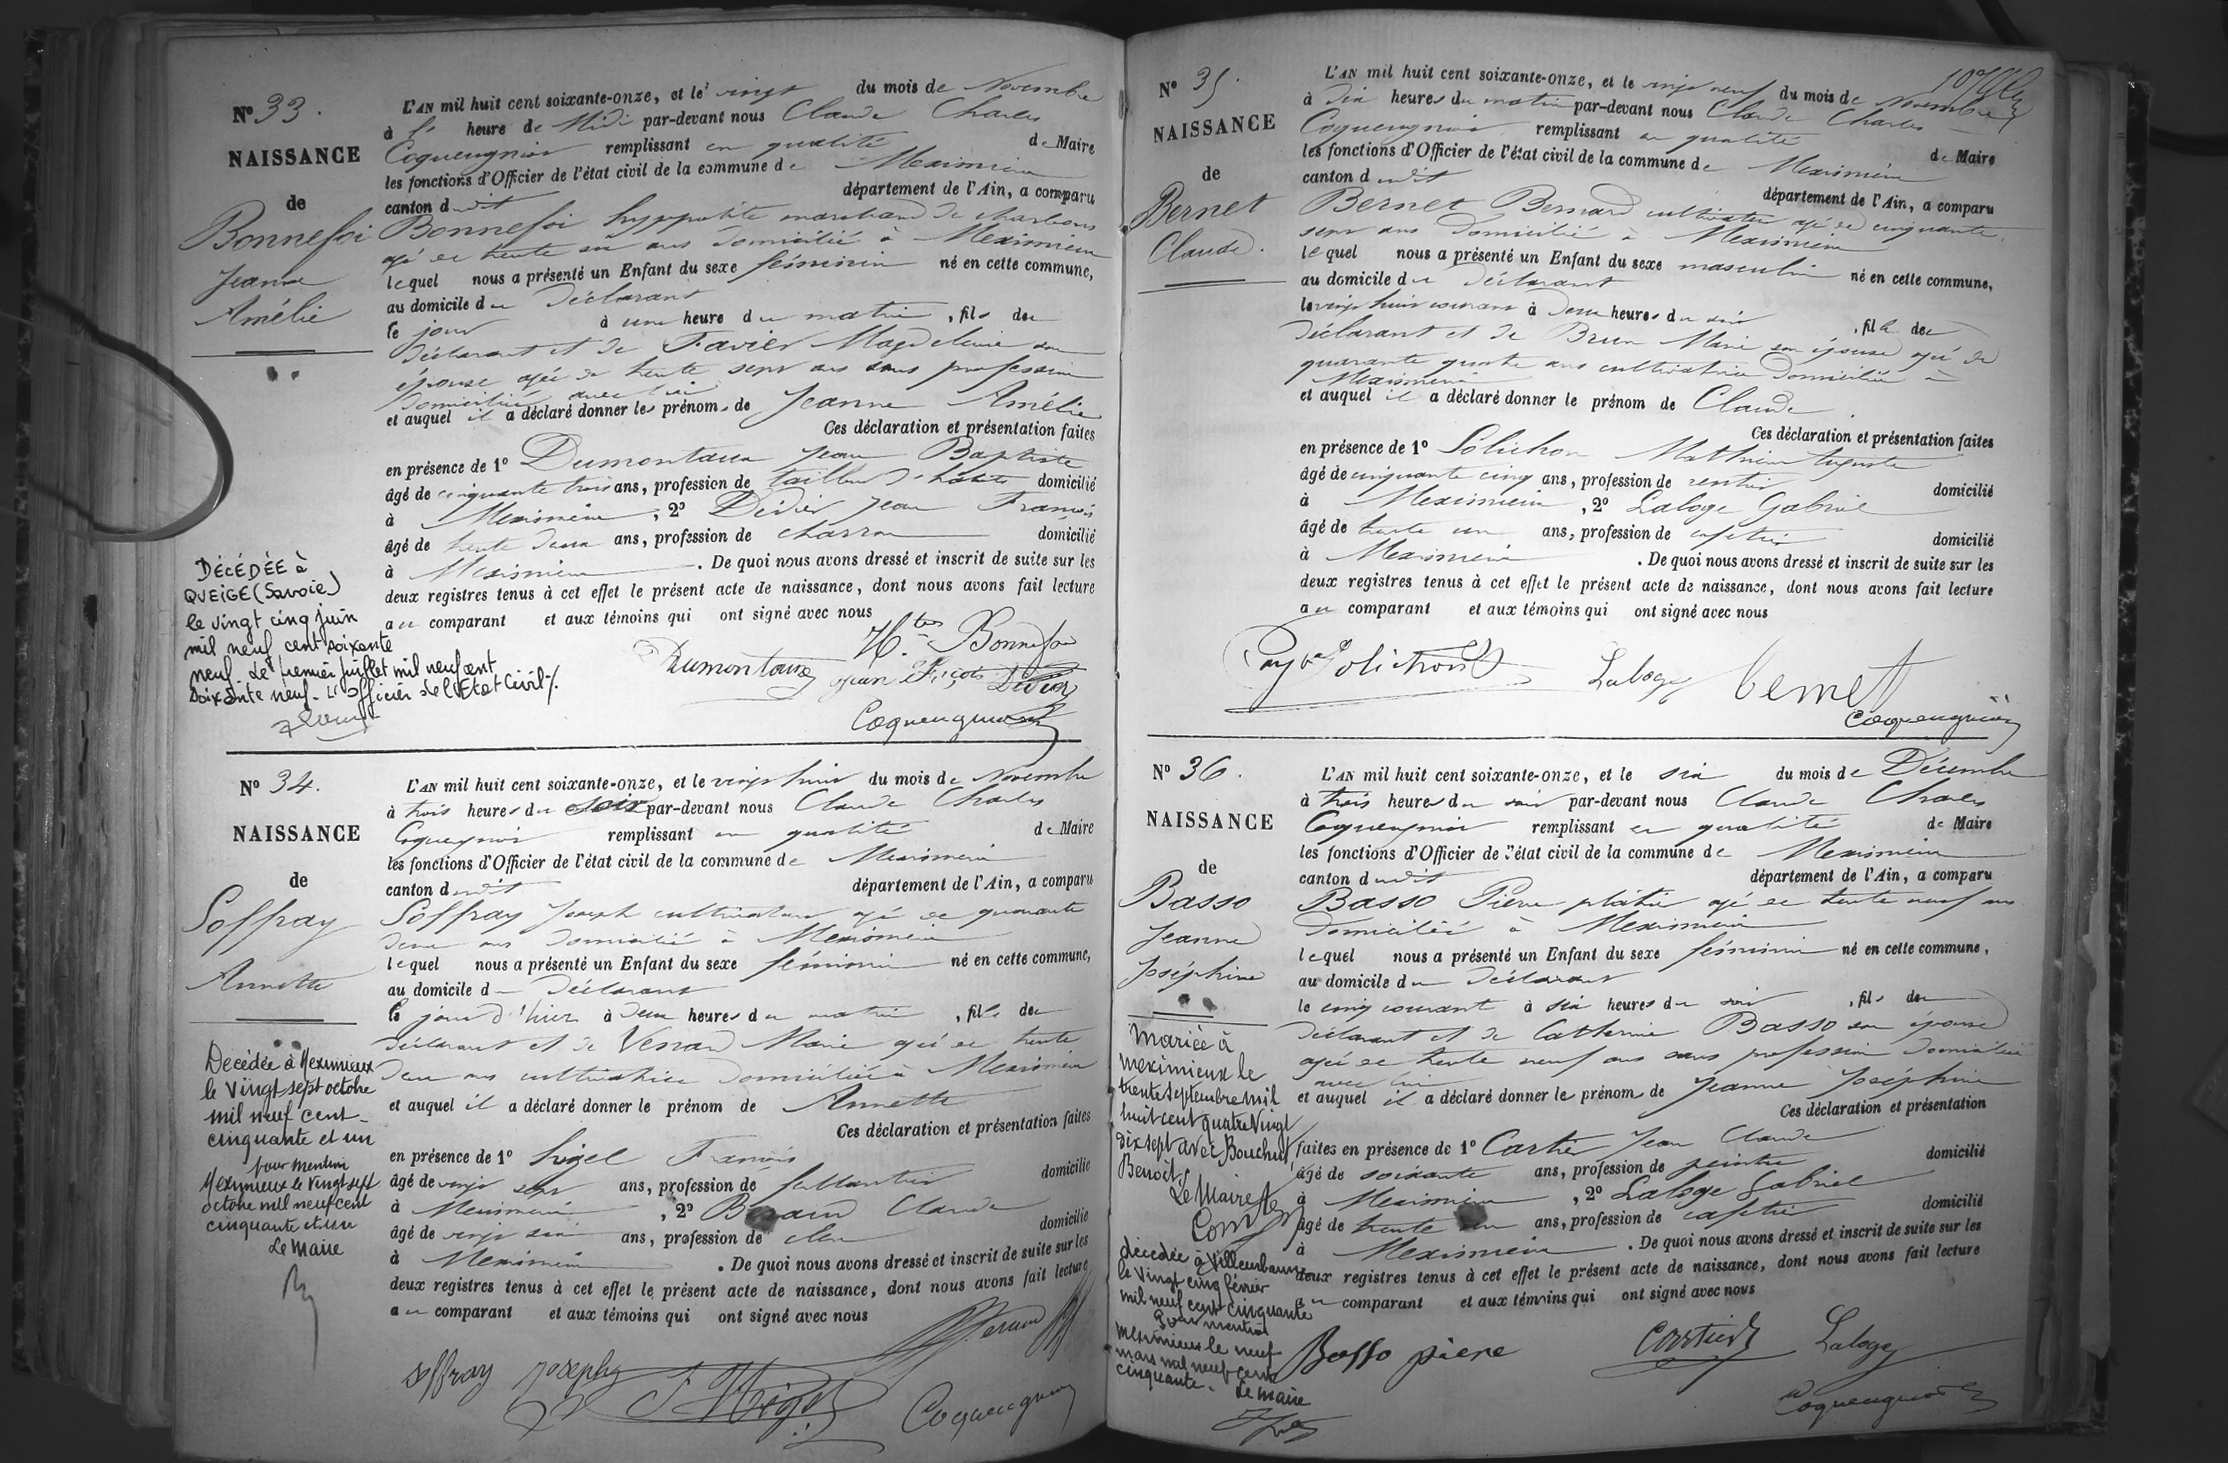 N° 33.
NAISSANCE
de
Bonnefoi
Jeanne
Amélie
DÉCÉDÉE à
QUEIGE (Savoie)
le vingt cinq juin
mil neuf cent soixante
neuf. Le premier juillet mil neuf cent
soixante neuf. L'officier de l'Etat Civil./.
L'AN mil huit cent soixante-onze, et le vingt du mois de Novembre
à heure de Midi par-devant nous Claude Charles
Coquengniot remplissant en qualité de Maire
les fonctions d'Officier de l'état civil de la commune de Meximieux
canton dudit département de l'Ain, a comparu
Bonnefoi hyppolite marchand de charbons
âgé de trente un ans domicilié à Meximieux
lequel nous a présenté un Enfant du sexe féminin né en cette commune,
au domicile du déclarant
le jour à une heure du matin, fils du
déclarant et de Favier Magdeleine son
épouse agée de trente sept ans sans profession
domiciliée avec lui
et auquel il a déclaré donner les prénoms de Jeanne Amélie
Ces déclaration et présentation faites
en présence de 1° Dumontaux Jean Baptiste
âgé de cinquante trois ans, profession de tailleur d'habits domicilié
à Meximieux, 2° Didier Jean François
âgé de trente deux ans, profession de charron domicilié
à Meximieux. De quoi nous avons dressé et inscrit de suite sur les
deux registres tenus à cet effet le présent acte de naissance, dont nous avons fait lecture
au comparant et aux témoins qui ont signé avec nous
H.tes Bonnefoi
Dumontaux Jean Fçois Didier
Coquengniot
N° 34.
NAISSANCE
de
Soffray
Annette
Decédée à Meximieux
le vingt sept octobre
mil neuf cent
cinquante et un
pour mention
Meximieux le vingt sept
octobre mil neuf cent
cinquante et un
Le Maire
L'AN mil huit cent soixante-onze, et le vingt huit du mois de Novembre
à trois heures du soir par-devant nous Claude Charles
Coquengniot remplissant en qualité de Maire
les fonctions d'Officier de l'état civil de la commune de Meximieux
canton dudit département de l'Ain, a comparu
Soffray Joseph cultivateur agé de quarante
deux ans domicilié à Meximieux
lequel nous a présenté un Enfant du sexe féminin né en cette commune,
au domicile du déclarant
le jour d'hier à deux heures du matin, fils du
déclarant et de Marie agée de trente
deux ans cultivatrice domiciliée à Meximieux
et auquel il a déclaré donner le prénom de Annette
Ces déclaration et présentation faites
en présence de 1° François
âgé de vingt sept ans, profession de ferblantier domicilié
à Meximieux, 2° Claude
âgé de vingt six ans, profession de clerc domicilié
à Meximieux. De quoi nous avons dressé et inscrit de suite sur les
deux registres tenus à cet effet le présent acte de naissance, dont nous avons fait lecture
au comparant et aux témoins qui ont signé avec nous
Soffray Joseph
Coquengniot
N° 35.
NAISSANCE
de
Bernet
Claude.
L'AN mil huit cent soixante-onze, et le vingt neuf du mois de Novembre
à dix heures du matin par-devant nous Claude Charles
Coquengniot remplissant en qualité de Maire
les fonctions d'Officier de l'état civil de la commune de Meximieux
canton dudit département de l'Ain, a comparu
Bernet Bernard cultivateur agé de cinquante
sept ans domicilié à Meximieux
lequel nous a présenté un Enfant du sexe masculin né en cette commune,
au domicile du déclarant
le vingt huit courant à deux heures du soir, fils du
déclarant et de Brun Marie son épouse agée de
quarante quatre ans cultivatrice domiciliée à
Meximieux
et auquel il a déclaré donner le prénom de Claude.
Ces déclaration et présentation faites
en présence de 1° Solichon Mathieu Auguste
âgé de cinquante cinq ans, profession de rentier domicilié
à Meximieux, 2° Laloge Gabriel
âgé de trente un ans, profession de cafetier domicilié
à Meximieux. De quoi nous avons dressé et inscrit de suite sur les
deux registres tenus à cet effet le présent acte de naissance, dont nous avons fait lecture
au comparant et aux témoins qui ont signé avec nous
Solichon Laloge Bernet
Coquengniot
N° 36.
NAISSANCE
de
Basso
Jeanne
Joséphine
Mariée à
Meximieux le
trente septembre mil
huit cent quatre vingt
dix sept avec Bouchut
Benoit
Le Maire
décédée à Villeurbanne
le vingt cinq février
mil neuf cent cinquante
Pour mention
Meximieux le neuf
mars mil neuf cent
cinquante. Le Maire
L'AN mil huit cent soixante-onze, et le six du mois de Décembre
à trois heures du soir par-devant nous Claude Charles
Coquengniot remplissant en qualité de Maire
les fonctions d'Officier de l'état civil de la commune de Meximieux
canton dudit département de l'Ain, a comparu
Basso Pierre plâtrier agé de trente neuf ans
domicilié à Meximieux
lequel nous a présenté un Enfant du sexe féminin né en cette commune,
au domicile du déclarant
le cinq courant à six heures du soir, fils du
déclarant et de Catherine Basso son épouse
agée de trente neuf ans sans profession domiciliée
avec lui
et auquel il a déclaré donner les prénoms de Jeanne Joséphine
Ces déclaration et présentation
faites en présence de 1° Cartier Jean Claude
âgé de soixante ans, profession de peintre domicilié
à Meximieux, 2° Laloge Gabriel
âgé de trente un ans, profession de cafetier domicilié
à Meximieux. De quoi nous avons dressé et inscrit de suite sur les
deux registres tenus à cet effet le présent acte de naissance, dont nous avons fait lecture
au comparant et aux témoins qui ont signé avec nous
Basso piere Cartier Laloge
Coquengniot